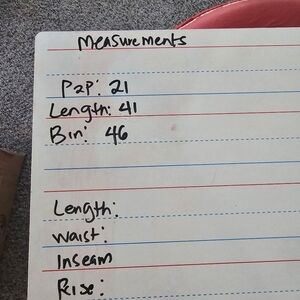 Measurements
P2P: 21
Length: 41
Bin: 46
Length:
Waist:
Inseam
Rise: